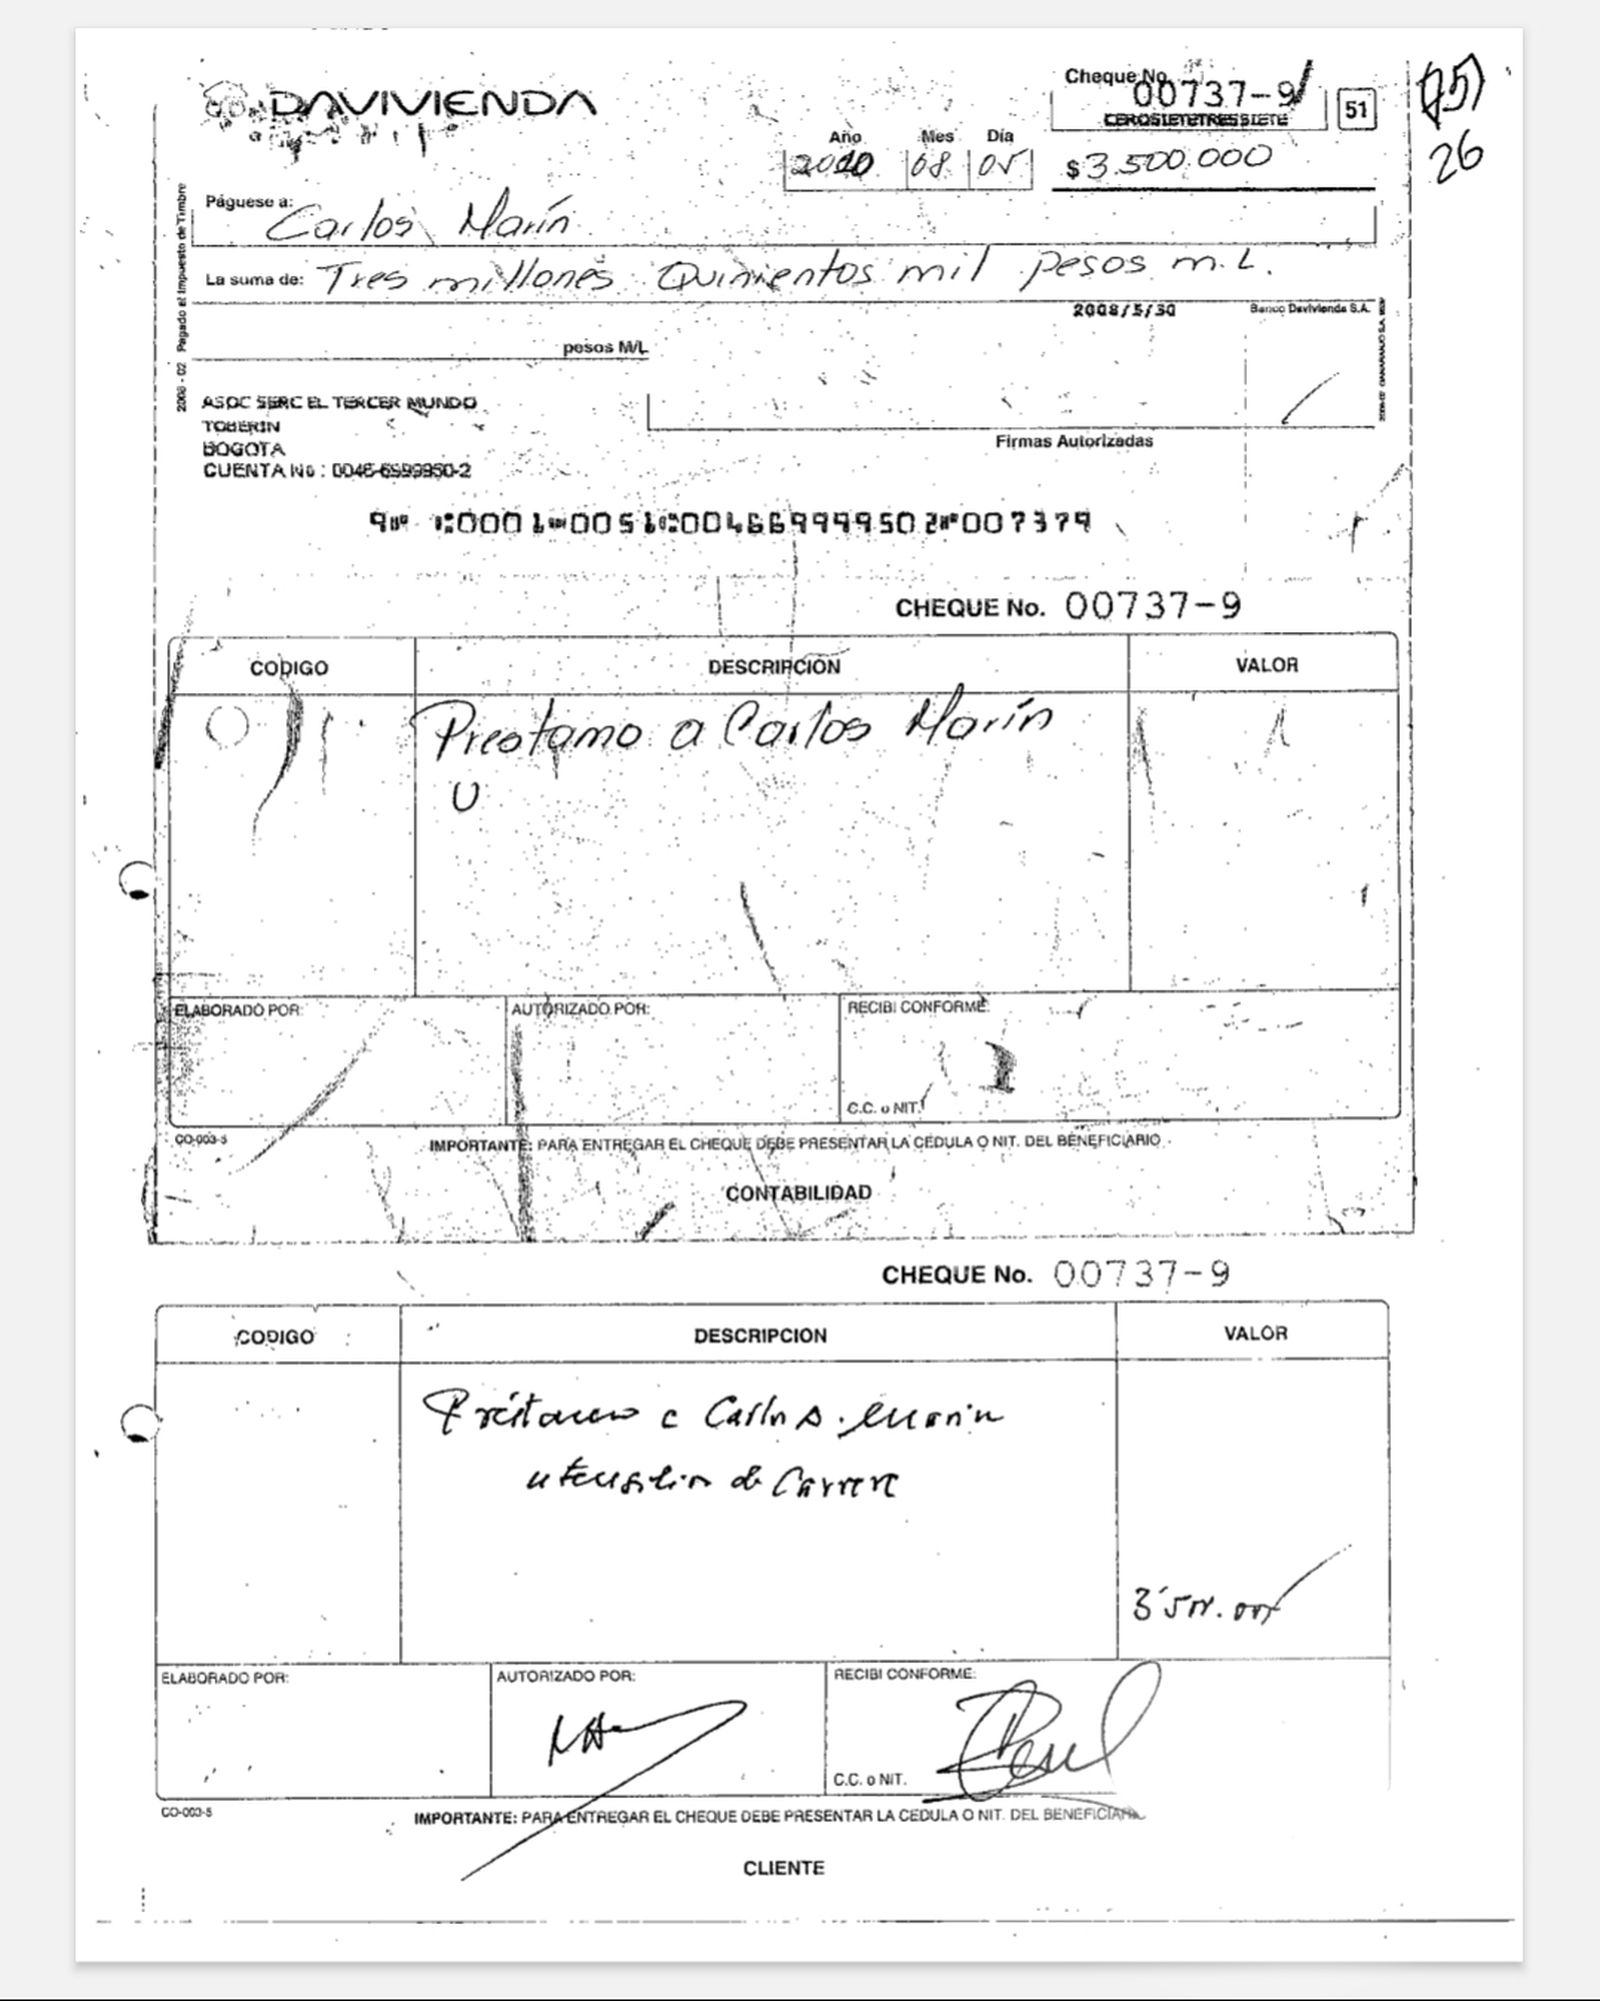 DAVIVIENDA
Cheque No.
00737-9
CEROSIETETRESSIETE
51
26
Año Mes Día
2010 08 05
$3.500.000
Páguese a:
Carlos Marín
La suma de: Tres millones Quinientos mil pesos m.L.
2008/5/30
Banco Davivienda S.A.
pesos M/L
2008 - 02 Pagado el Impuesto de Timbre
ASOC SERC EL TERCER MUNDO
TOBERIN
BOGOTA
CUENTA No :
Firmas Autorizadas
CHEQUE No. 00737-9
CODIGO DESCRIPCION VALOR
Prestamo a Carlos Marín
ELABORADO POR: AUTORIZADO POR: RECIBI CONFORME:
C.C. o NIT.
CO-003-5
IMPORTANTE: PARA ENTREGAR EL CHEQUE DEBE PRESENTAR LA CEDULA O NIT. DEL BENEFICIARIO
CONTABILIDAD
CHEQUE No. 00737-9
CODIGO DESCRIPCION VALOR
Préstamo a Carlos Marín
ELABORADO POR: AUTORIZADO POR: RECIBI CONFORME:
C.C. o NIT.
CO-003-5
IMPORTANTE: PARA ENTREGAR EL CHEQUE DEBE PRESENTAR LA CEDULA O NIT. DEL BENEFICIARIO
CLIENTE